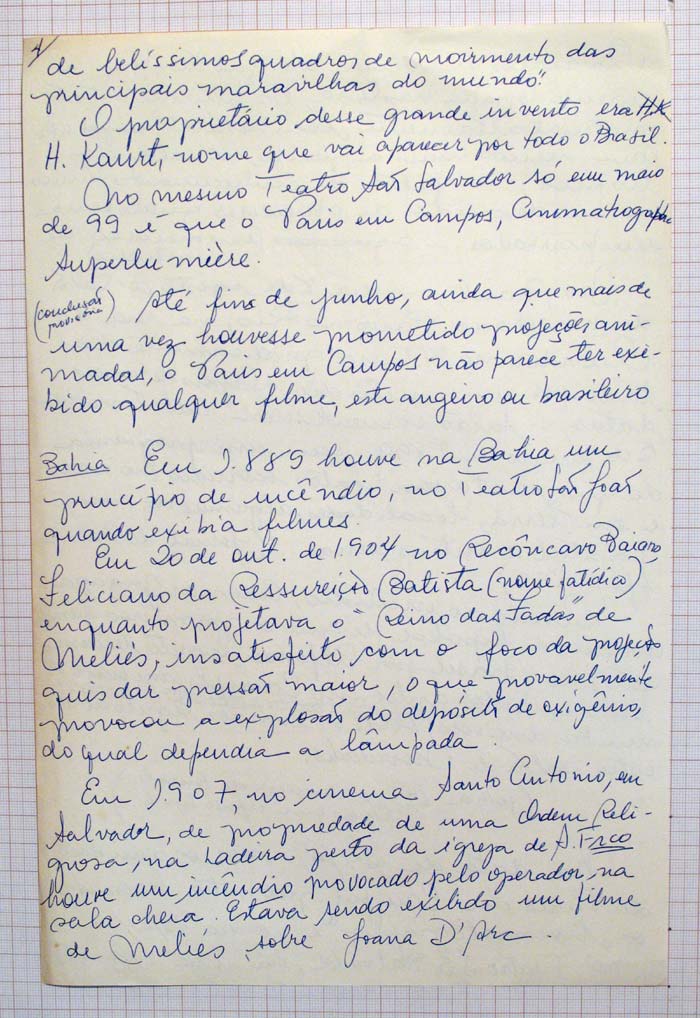 4/
de belíssimos quadros de movimento das
principais maravilhas do mundo".
O proprietário desse grande invento era H.K
H. Kaurt, nome que vai aparecer por todo o Brasil.
No mesmo Teatro São Salvador só em maio
de 99 é que o Paris em Campos, Cinematographo
Superlumière.
(conclusão
provisória)
Até fins de junho, ainda que mais de
uma vez houvesse prometido projeções ani-
madas, o Paris em Campos não parece ter exi-
bido qualquer filme, estrangeiro ou brasileiro
Bahia Em 1.889 houve na Bahia um
princípio de incêndio, no Teatro São João
quando exibia filmes.
Em 20 de out. de 1.904 no Recôncavo Baiano,
Feliciano da Ressureição Batista (nome fatídico)
enquanto projetava o "Reino das Fadas" de
Meliés, insatisfeito com o foco da projeção
quis dar pressão maior, o que provavelmente
provocou a explosão do depósito de oxigênio,
do qual dependia a lâmpada.
Em 1.907, no cinema Santo Antonio, em
Salvador, de propriedade de uma Ordem Reli-
giosa, na Ladeira perto da igreja de S. Frco
houve um incêndio provocado pelo operador, na
sala cheia. Estava sendo exibido um filme
de Meliés, sobre Joana D'Arc.